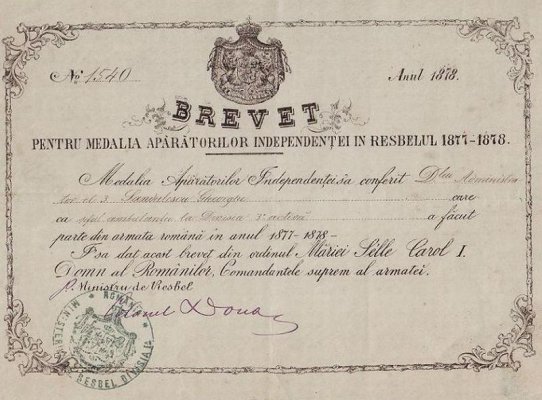 No. 1540
Anul 1878.
BREVET
PENTRU MEDALIA APĂRĂTORILOR INDEPENDENȚEI IN RESBELUL 1877-1878.
Medalia Apărătorilor Independenței s'a conferit D-lui Administra
tor cl. 3. Gheorghe care
ca șeful ambulantei la Divisia 3ª activă a făcut
parte din armata română in anul 1877-1878-
I s'a dat acest brevet din ordinul Măriei Sélle Carol I.
Domn al Românilor, Comandantele suprem al armatei.
p. Ministru de Resbel
Colonel
ROMÂN
MINISTER RESBEL